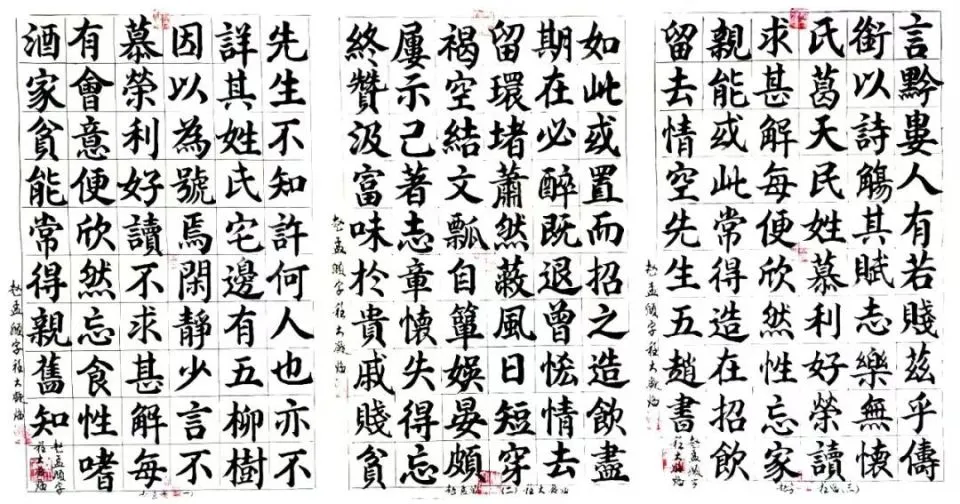 先生不知許何人也亦不
詳其姓氏宅邊有五柳樹
因以為號焉閑靜少言不
慕榮利好讀不求甚解每
有會意便欣然忘食性嗜
酒家貧能常得親舊知
赵孟頫字
赵孟頫字
(一)
如此或置而招之造飲盡
期在必醉既退曾恡情去
留環堵蕭然蔽風日短穿
褐空結文瓢自簞娛晏頗
屢示己著志章懷失得忘
終贊汲富味於貴戚賤貧
赵孟頫字
(二)
言黔婁人有若賤茲乎儔
銜以詩觴其賦志樂無懷
氏葛天民姓慕利好榮讀
求甚解每便欣然性忘家
親能或此常得造在招飲
留去情空先生五趙書
赵孟頫字
赵孟頫字
(三)